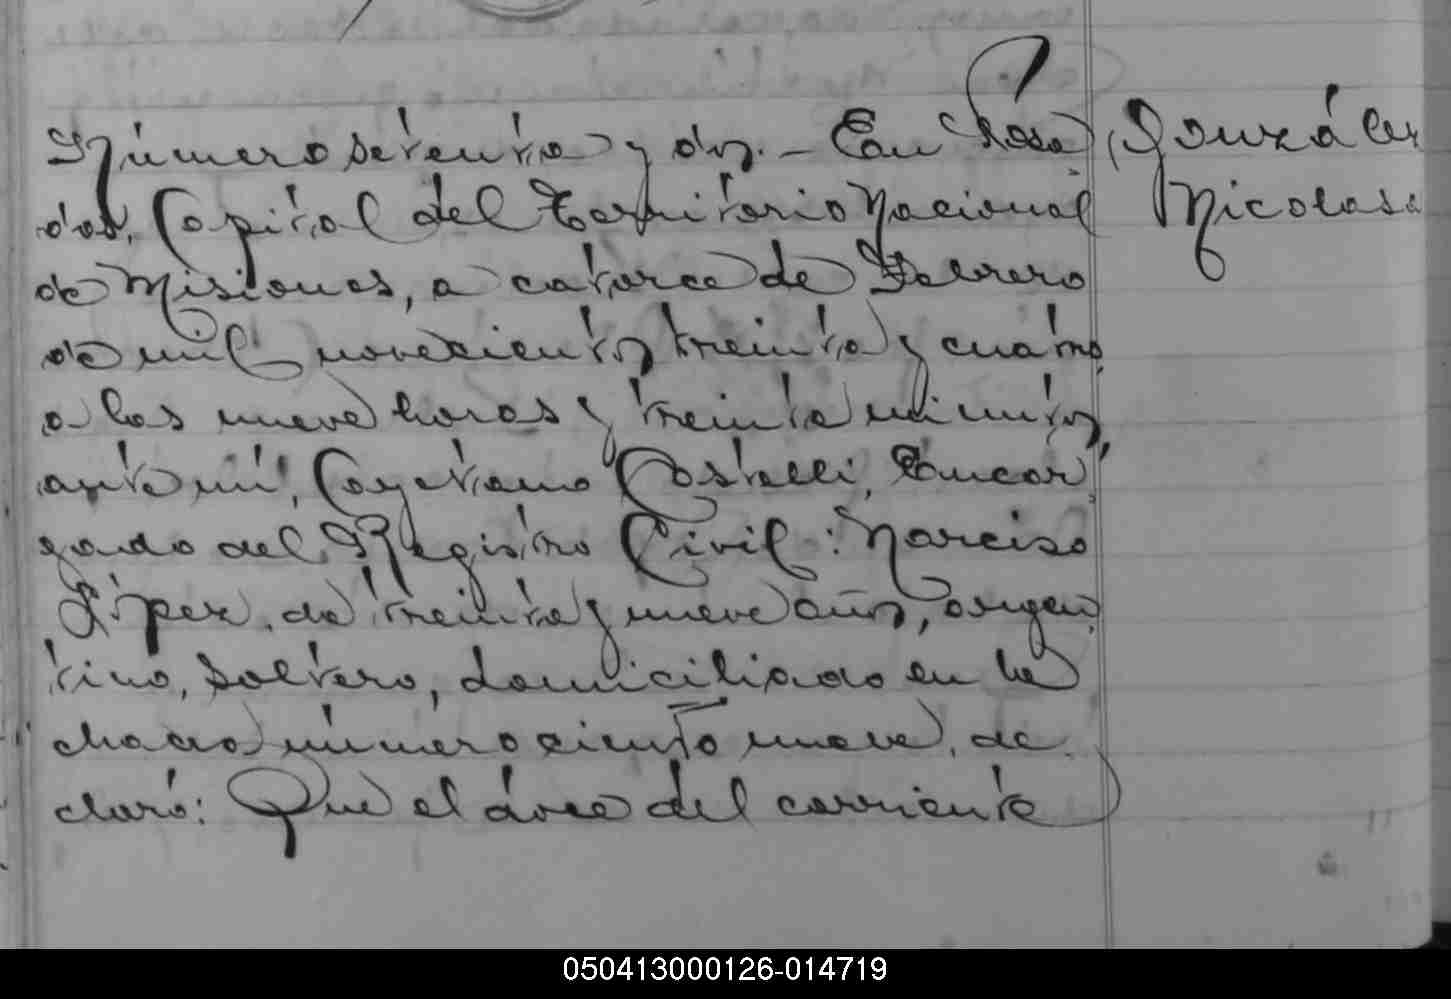 Número setenta y dos.- En Posa
das, Capital del Territorio Nacional
de Misiones, a catorce de Febrero
de mil novecientos treinta y cuatro,
a las nueve horas y treinta minutos,
ante mí, Cayetano Castelli, Encar
gado del Registro Civil: Narciso
López, de treinta y nueve años, argen
tino, soltero, domiciliado en la
chacra número ciento nueve, de
claró: Que el doce del corriente
González
Nicolasa
050413000126-014719